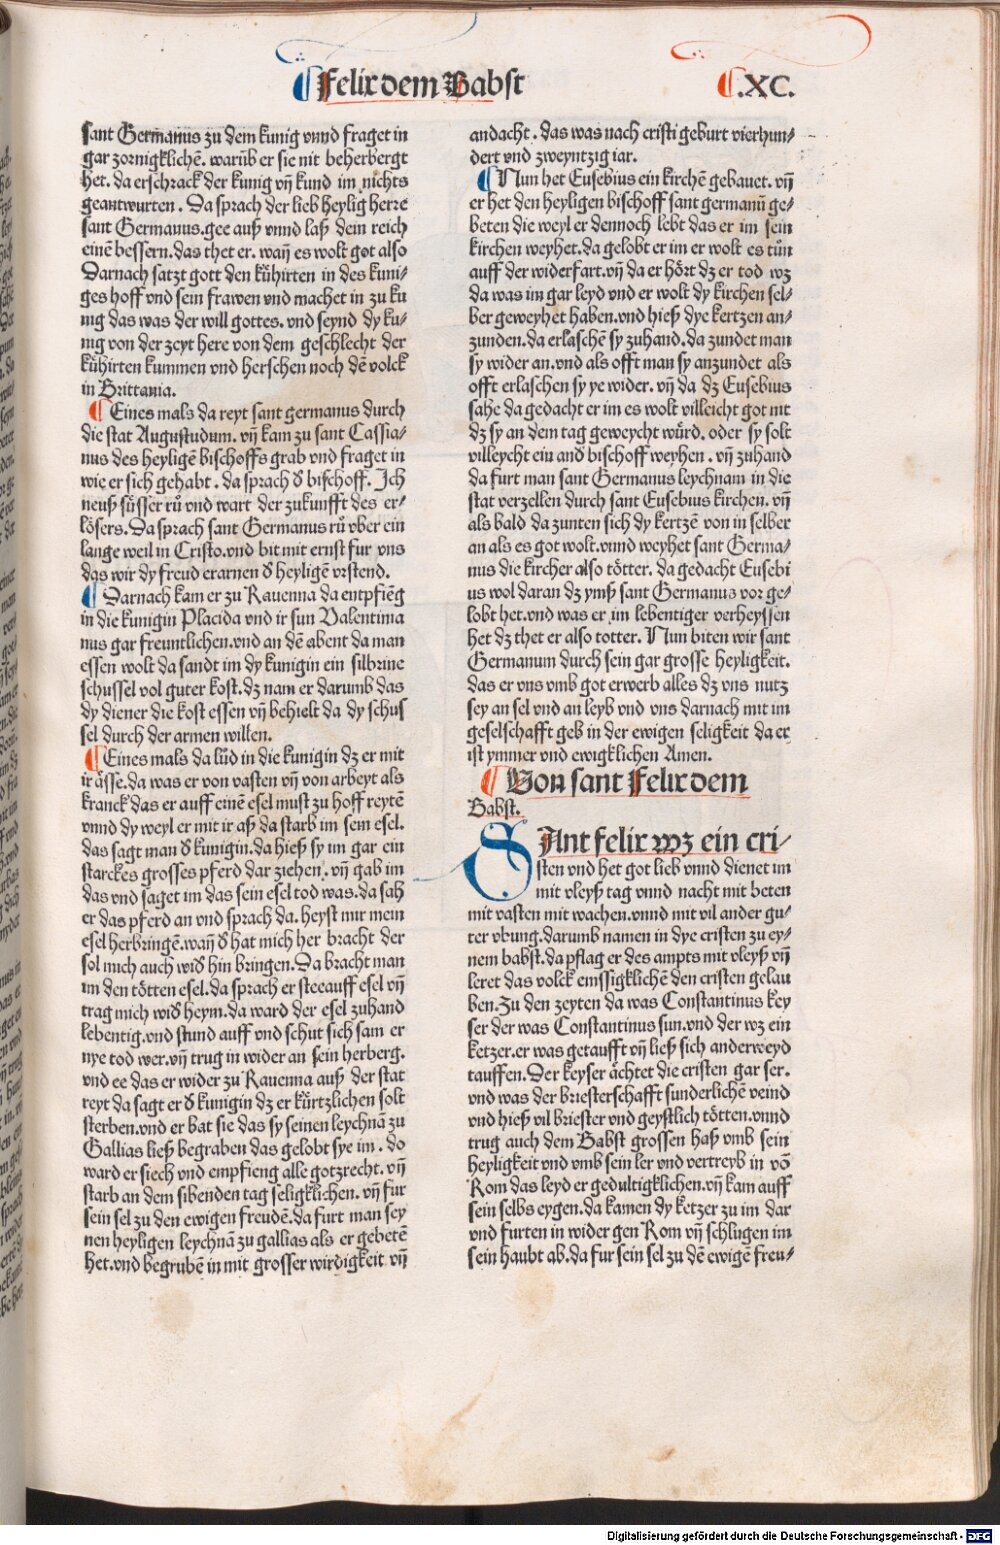 ¶ Felix dem Babst
¶ .XC.
sant Germanus zu dem kunig vnnd fraget in
gar zornigklichē. warūb er sie nit beherbergt
het. da erschrack der kunig vn̄ kund im nichts
geantwurten. Da sprach der lieb heylig herre
sant Germanus. gee auß vnnd laß dein reich
einē bessern. das thet er. wan̄ es wolt got also
Darnach satzt gott den kůhirten in des kuni-
ges hoff vnd sein frawen vnd machet in zu ku
nig das was der will gottes. vnd seynd dy ku-
nig von der zeyt here von dem geschlecht der
kůhirten kummen vnd herschen noch dē volck
in Brittania.
¶ Eines mals da reyt sant germanus durch
die stat Augustudum. vn̄ kam zu sant Cassia-
nus des heyligē bischoffs grab vnd fraget in
wie er sich gehabt. da sprach d̄ bischoff. Ich
neuß sůsser rů vnd wart der zukunfft des er-
lősers. Da sprach sant Germanus rů vber ein
lange weil in Cristo. vnd bit mit ernst fur vns
das wir dy freud erarnen d̄ heyligē vrstend.
¶ Darnach kam er zu Rauenna da entpfiēg
in die kunigin Placida vnd ir sun Valentinia
nus gar freuntlichen. vnd an dē abent da man
essen wolt da sandt im dy kunigin ein silbrine
schussel vol guter kost. dz nam er darumb das
dy diener die kost essen vn̄ behielt da dy schus
sel durch der armen willen.
¶ Eines mals da lůd in die kunigin dz er mit
ir ässe. da was er von vasten vn̄ von arbeyt als
kranck das er auff einē esel must zu hoff reytē
vnnd dy weyl er mit ir aß da starb im sein esel.
das sagt man d̄ kunigin. da hieß sy im gar ein
starckes grosses pferd dar ziehen. vn̄ gab im
das vnd saget im das sein esel tod was. da sah
er das pferd an vnd sprach da. heyst mir mein
esel herbringē. wan̄ d̄ hat mich her bracht der
sol mich auch wid̄ hin bringen. Da bracht man
im den tőtten esel. da sprach er stee auff esel vn̄
trag mich wid̄ heym. da ward der esel zuhand
lebentig. vnd stund auff vnd schut sich sam er
nye tod wer. vn̄ trug in wider an sein herberg.
vnd ee das er wider zu Rauenna auß der stat
reyt da sagt er d̄ kunigin dz er kůrtzlichen solt
sterben. vnd er bat sie das sy seinen leychnā zu
Gallias ließ begraben das gelobt sye im. do
ward er siech vnd empfieng alle gotzrecht. vn̄
starb an dem sibenden tag seligklichen. vn̄ fur
sein sel zu den ewigen freudē. da furt man sey
nen heyligen leychnā zu gallias als er gebetē
het. vnd begrubē in mit grosser wirdigkeit vn̄
andacht. das was nach cristi geburt vierhun-
dert vnd zweyntzig iar.
¶ Nun het Eusebius ein kirchē gebauet. vn̄
er het den heyligen bischoff sant germanū ge-
beten die weyl er dennoch lebt das er im sein
kirchen weyhet. da gelobt er im er wolt es tůn
auff der widerfart. vn̄ da er hőrt dz er tod wz
da was im gar leyd vnd er wolt dy kirchen sel-
ber geweyhet haben. vnd hieß dye kertzen an-
zunden. da erlaschē sy zuhand. da zundet man
sy wider an. vnd als offt man sy anzundet als
offt erlaschen sy ye wider. vn̄ da dz Eusebius
sahe da gedacht er im es wolt villeicht got nit
dz sy an dem tag geweycht wůrd. oder sy solt
villeycht ein and̄ bischoff weyhen. vn̄ zuhand
da furt man sant Germanus leychnam in die
stat verzellen durch sant Eusebius kirchen. vn̄
als bald da zunten sich dy kertzē von in selber
an als es got wolt. vnnd weyhet sant Germa-
nus die kircher also tőtter. da gedacht Eusebi
us wol daran dz ymß sant Germanus vor ge-
lobt het. vnd was er im lebentiger verheyssen
het dz thet er also totter. Nun biten wir sant
Germanum durch sein gar grosse heyligkeit.
das er vns vmb got erwerb alles dz vns nutz
sey an sel vnd an leyb vnd vns darnach mit im
geselschafft geb in der ewigen seligkeit da er
ist ymmer vnd ewigklichen Amen.
¶ Von sant Felix dem
Babst.
SAnt felix wz ein cri-
sten vnd het got lieb vnnd dienet im
mit vleyß tag vnnd nacht mit beten
mit vasten mit wachen. vnnd mit vil ander gu-
ter vbung. darumb namen in dye cristen zu ey-
nem babst. da pflag er des ampts mit vleyß vn̄
leret das volck emssigklichē den cristen gelau
ben. Zu den zeyten da was Constantinus key
ser der was Constantinus sun. vnd der wz ein
ketzer. er was getaufft vn̄ ließ sich anderweyd
tauffen. Der keyser ächtet die cristen gar ser.
vnd was der briesterschafft sunderlichē veind
vnd hieß vil briester vnd geystlich tőtten. vnnd
trug auch dem Babst grossen haß vmb sein
heyligkeit vnd vmb sein ler vnd vertreyb in vō
Rom das leyd er gedultigklichen. vn̄ kam auff
sein selbs eygen. da kamen dy ketzer zu im dar
vnd furten in wider gen Rom vn̄ schlugen im
sein haubt ab. da fur sein sel zu dē ewigē freu-
Digitalisierung gefördert durch die Deutsche Forschungsgemeinschaft - DFG